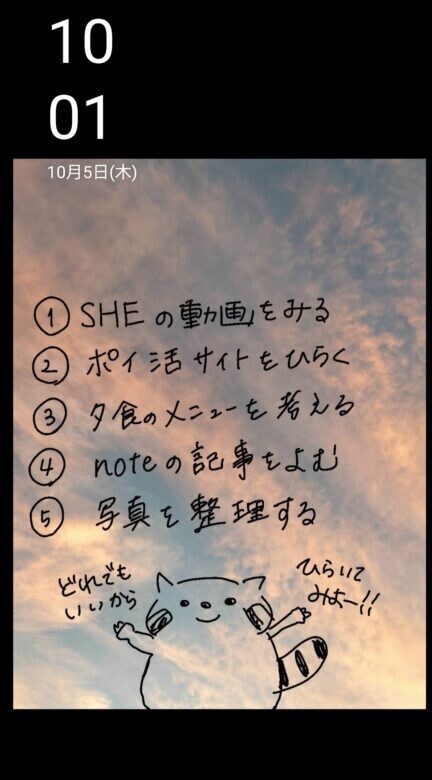 10
01
10月5日(木)
① SHEの動画をみる
② ポイ活サイトをひらく
③ 夕食のメニューを考える
④ noteの記事をよむ
⑤ 写真を整理する
どれでも
いいから
ひらいて
みよー!!